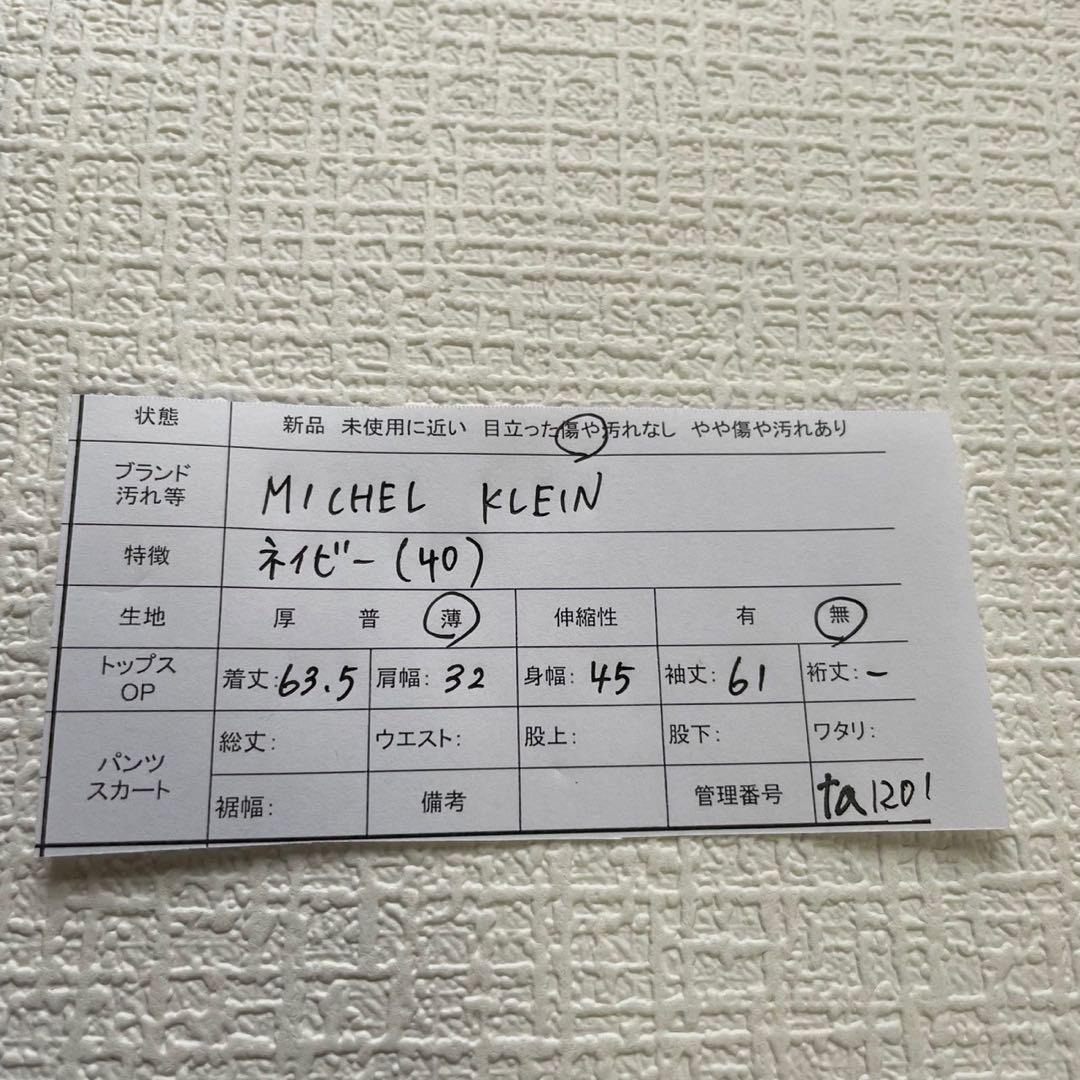 状態 新品 未使用に近い 目立った傷や汚れなし やや傷や汚れあり
ブランド
汚れ等 MICHEL KLEIN
特徴 ネイビー(40)
生地 厚 普 薄 伸縮性 有 無
トップス
OP 着丈:63.5 肩幅:32 身幅:45 袖丈:61 裄丈:-
パンツ
スカート 総丈: ウエスト: 股上: 股下: ワタリ:
裾幅: 備考 管理番号 ta1201